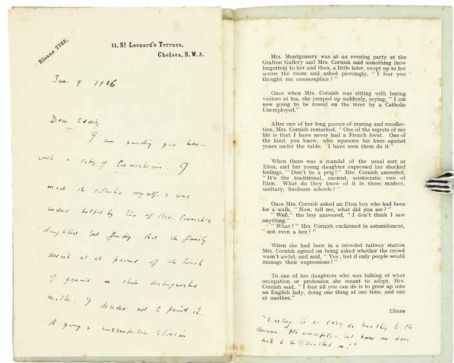 Sloane 7798.
11, St Leonard's Terrace,
Chelsea, S.W. 3.
Jan. 9 1936
Dear
I am sending you here-
with a copy of Cornishiana. I
made the collection myself & was
indeed helped by two of Mrs. Cornish's
daughters but finding that the family
at
of their distinguished
mother, I decided not to print it.
Mrs. Montgomery was at an evening party at the
Grafton Gallery and Mrs. Cornish said something (now
forgotten) to her and then, a little later, swept up to her
across the room and asked piercingly, "I fear you
thought me commonplace!"
Once when Mrs. Cornish was sitting with boring
visitors at tea, she jumped up suddenly, saying, "I am
now going to be rowed on the river by a Catholic
Unemployed."
After one of her long pauses of musing and recollec-
tion, Mrs. Cornish remarked, "One of the regrets of my
life is that I have never had a French lover. One of
the kind, you know, who squeezes his knee against
yours under the table. I have seen them do it."
When there was a scandal of the usual sort at
Eton, and her young daughter expressed her shocked
feelings, "Don't be a prig!" Mrs. Cornish answered.
"It's the traditional, ancient, aristocratic vice of
Eton. What do they know of it in those modern,
sanitary, linoleum schools?"
Once Mrs. Cornish asked an Eton boy who had been
for a walk, "Now, tell me, what did you see?"
"Well," the boy answered, "I don't think I saw
anything."
"What!" Mrs. Cornish exclaimed in astonishment,
"not even a hen?"
When she had been in a crowded railway station
Mrs. Cornish agreed on being asked whether the crowd
wasn't awful, and said, "Yes; but if only people would
manage their expressions!"
To one of her daughters who was talking of what
occupation or profession she meant to adopt, Mrs.
Cornish said, "I fear all you can do is to grow up into
an English lady, doing one thing at one time, and one
at another."